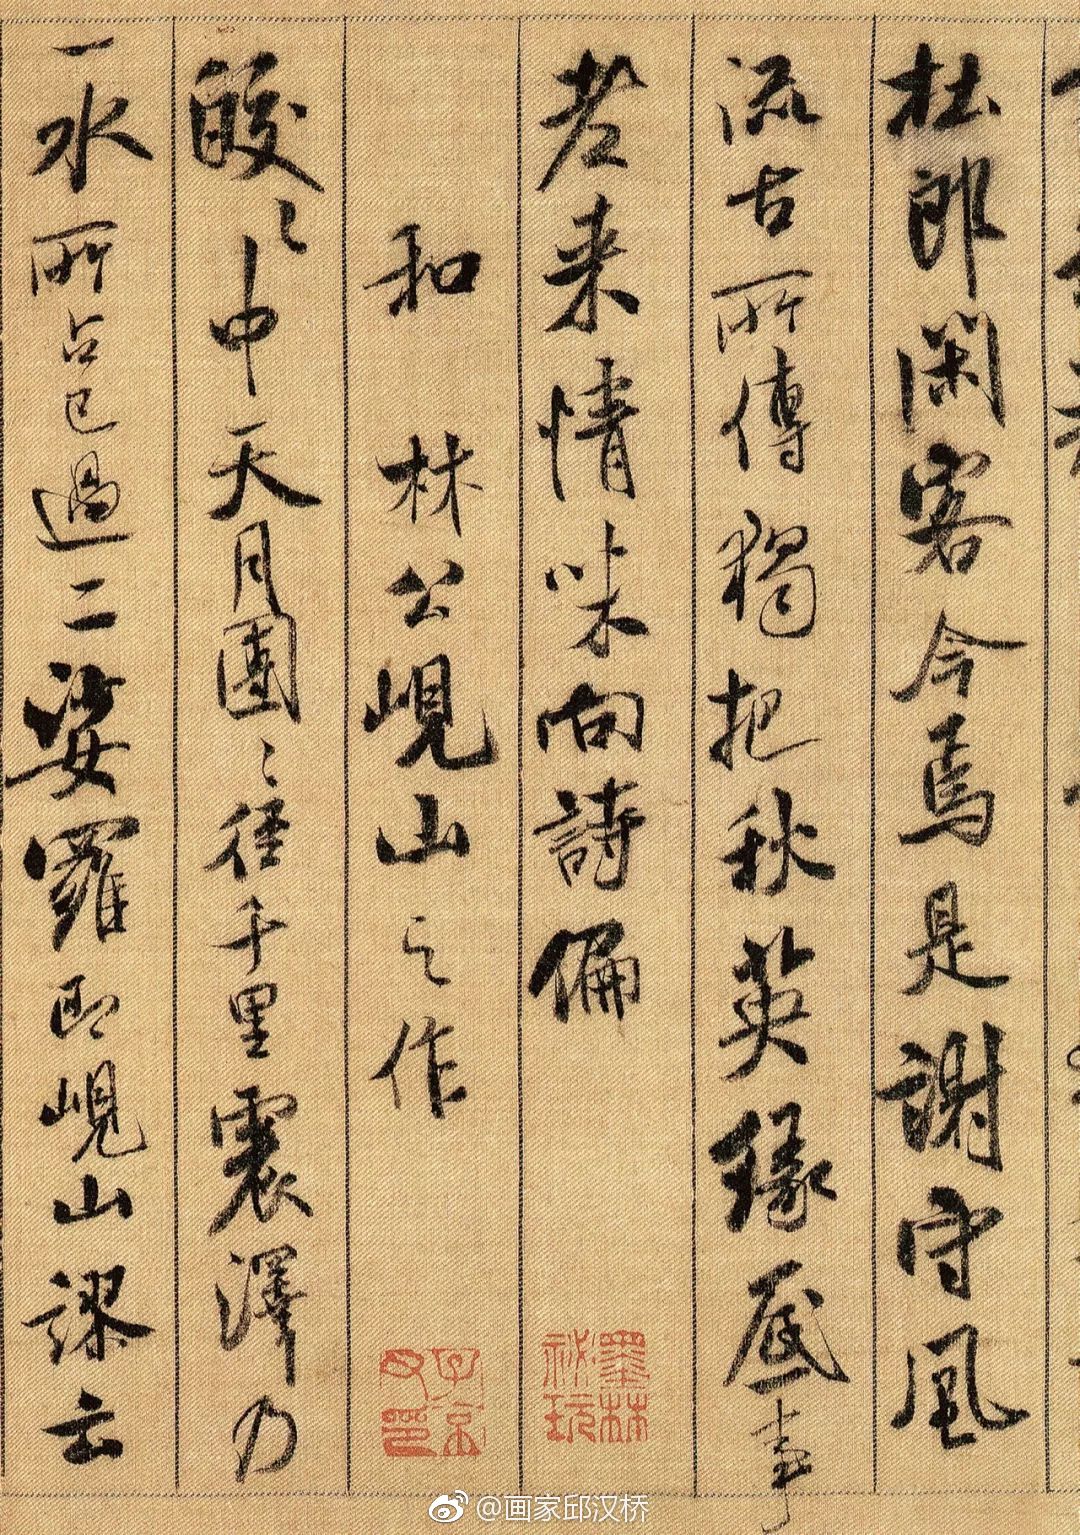 杜郎閑客今焉是謝守風
流古所傳獨把秋英緣底事
老来情味向詩偏
和林公峴山之作
皎〻中天月團〻徑千里震澤乃
一水所占已過二娑羅即峴山謬云
墨林
祕玩
子京
父印
@画家邱汉桥